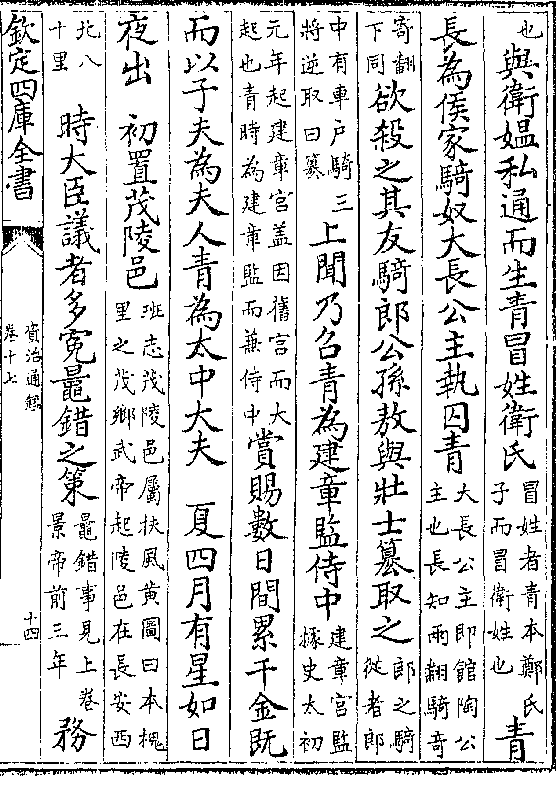 也與衛媼私通而生青冒姓衛氏冒姓者青本鄭氏子而冒衛姓也青
長為侯家騎奴大長公主執囚青大長公主即館陶公主也長知兩翻騎奇
寄翻下同欲殺之其友騎郎公孫敖與壯士簒取之郎之騎從者郎
中有車户騎三將逆取曰簒上聞乃召青為建章監侍中建章宮監據史太初
元年起建章宮盖因舊宮而大起也青時為建章監而兼侍中賞賜數日間累千金既
而以子夫為夫人青為太中大夫 夏四月有星如日
夜出 初置茂陵邑班志茂陵邑屬扶風黄圖曰本槐里之茂鄉武帝起陵邑在長安西
北八十里 時大臣議者多寃鼂錯之策鼂錯事見上卷景帝前三年務
欽定四庫全書
資治通鑑
卷十七
十四